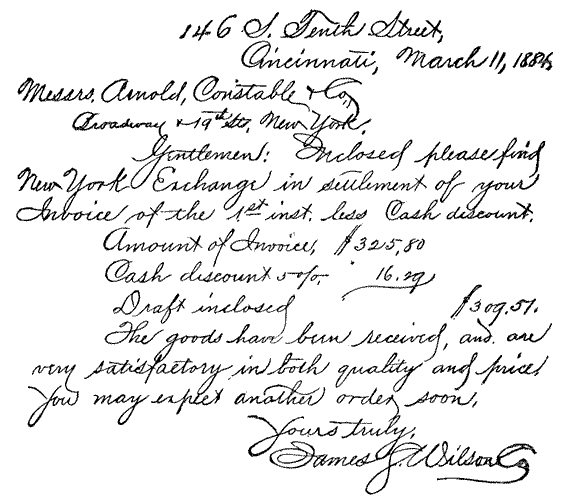 146 S. Tenth Street,
Cincinnati, March 11, 1884,
Messrs. Arnold, Constable & Co.,
Broadway & 19th St., New York.
Gentlemen: Inclosed please find
New York Exchange in settlement of your
Invoice of the 1st inst. less Cash discount.
Amount of Invoice, $325,80
Cash discount 5 0/0, 16.29
Draft inclosed $309.51.
The goods have been received, and are
very satisfactory in both quality and price.
You may expect another order soon.
Yours truly,
James J. Wilson